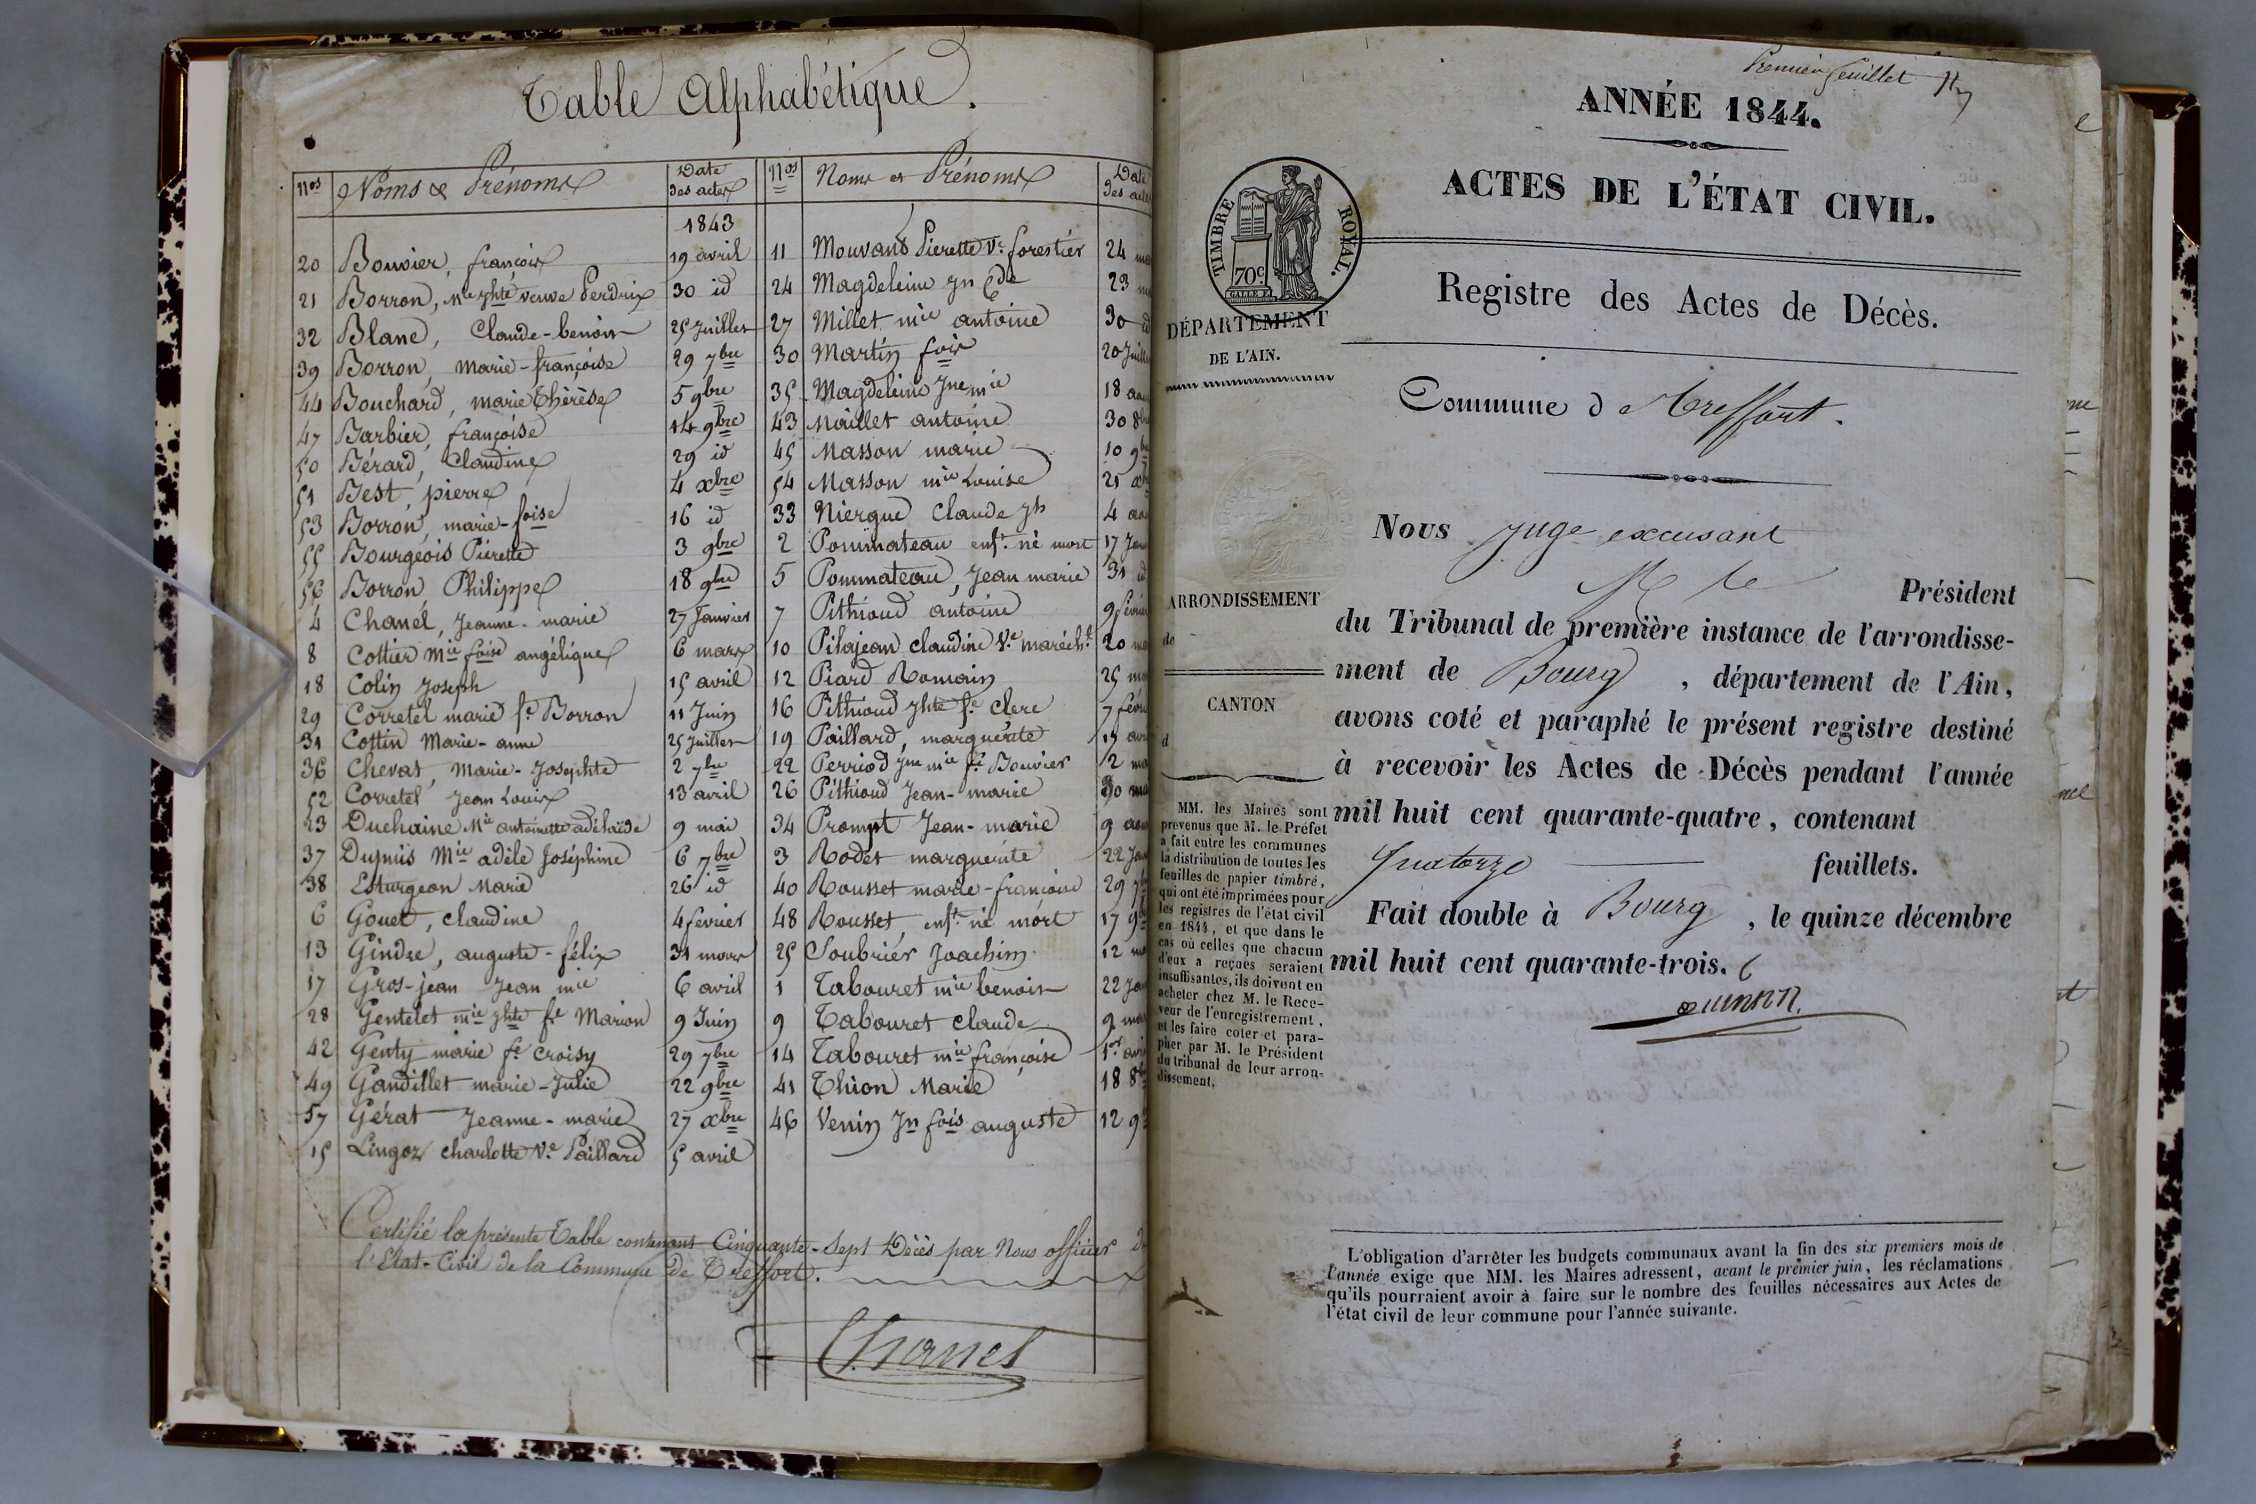 Table Alphabétique.
Nos Noms & Prénoms Date des actes
1843
20 Bouvier, françois 19 avril
21 Borron, Mie jhte veuve Perdrix 30 id
32 Blanc, Claude-benoit 25 Juillet
39 Borron, marie-françoise 29 7bre
44 Bouchard, marie Thérèse 5 9bre
47 Barbier, françoise 14 9bre
50 Bérard, Claudine 29 id
51 Best, pierre 4 xbre
53 Borron, marie-foise 16 id
55 Bourgeois Pierette 3 9bre
56 Borron Philippe 18 9bre
4 Chanel, Jeanne-marie 27 Janvier
8 Cottier Mie foise angélique 6 mars
18 Colin Joseph 15 avril
29 Corretel marie fe Borron 11 Juin
31 Cottin Marie-anne 25 Juillet
36 Chevat, Marie-Josephte 2 7bre
52 Corretel Jean Louis 13 avril
23 Duchaine Mie antoinette adélaïde 9 mai
37 Dupuis Mie adèle Joséphine 6 7bre
38 Esturgeon Marie 26 id
6 Gouet, claudine 4 fevrier
13 Gindre, auguste-félix 31 mars
17 Gros-jean Jean mie 6 avril
28 Gentelet mie jhte fe Marion 9 Juin
42 Genty marie fe Croisy 29 7bre
49 Gandillet marie-Julie 22 9bre
57 Gérat Jeanne-marie 27 xbre
15 Lingoz charlotte Ve Paillard 5 avril
Nos Noms et Prénoms Date des actes
11 Mouvand Pierette Ve forestier 24
24 Magdeleine Jn Cde 23
27 Millet mie antoine 30
30 Martin fois 20 Juillet
35 Magdeleine Jne mie 18
43 Maillet antoine 30 8bre
45 Masson marie 10 9bre
54 Masson mie Louise 21
33 Niergue Claude jh 4
2 Pommateau enft né mort 17
5 Pommateau, Jean marie 31 id
7 Pithioud antoine 9 février
10 Pilajean claudine Ve 20
12 Piard Romain 25
16 Pithioud jhte fe Clerc 7
19 Paillard, marguerite 15
22 Perriod Jne mie fe Bouvier 2
26 Pithioud Jean-marie 30
34 Prompt Jean-marie 9
3 Rodet marguerite 22
40 Rousset marie-françoise 29
48 Rousset, enft né mort 17
25 Soubrier Joachim 12
1 Tabouret mie benoit 22
9 Tabouret Claude 9
14 Tabouret mie françoise 1er
41 Thion Marie 18
46 Venin Jn fois auguste 12
Certifié la présente Table contenant Cinquante-sept Décès par Nous officier de
l'Etat-Civil de la Commune de Treffort.
Chanel
Premier feuillet
ANNÉE 1844.
ACTES DE L'ÉTAT CIVIL.
TIMBRE ROYAL.
70c
Registre des Actes de Décès.
DÉPARTEMENT
DE L'AIN.
Commune d Treffort.
Nous Juge excusant
M le Président
ARRONDISSEMENT
de
CANTON
d
du Tribunal de première instance de l'arrondisse-
ment de Bourg, département de l'Ain,
avons coté et paraphé le présent registre destiné
à recevoir les Actes de Décès pendant l'année
mil huit cent quarante-quatre, contenant
quatorze feuillets.
Fait double à Bourg, le quinze décembre
mil huit cent quarante-trois.
MM. les Maires sont
prévenus que M. le Préfet
a fait entre les communes
la distribution de toutes les
feuilles de papier timbré,
qui ont été imprimées pour
les registres de l'état civil
en 1844, et que dans le
cas où celles que chacun
d'eux a reçues seraient
insuffisantes, ils doivent en
acheter chez M. le Rece-
veur de l'enregistrement,
et les faire coter et para-
pher par M. le Président
du tribunal de leur arron-
dissement.
L'obligation d'arrêter les budgets communaux avant la fin des six premiers mois de
l'année exige que MM. les Maires adressent, avant le premier juin, les réclamations
qu'ils pourraient avoir à faire sur le nombre des feuilles nécessaires aux Actes de
l'état civil de leur commune pour l'année suivante.